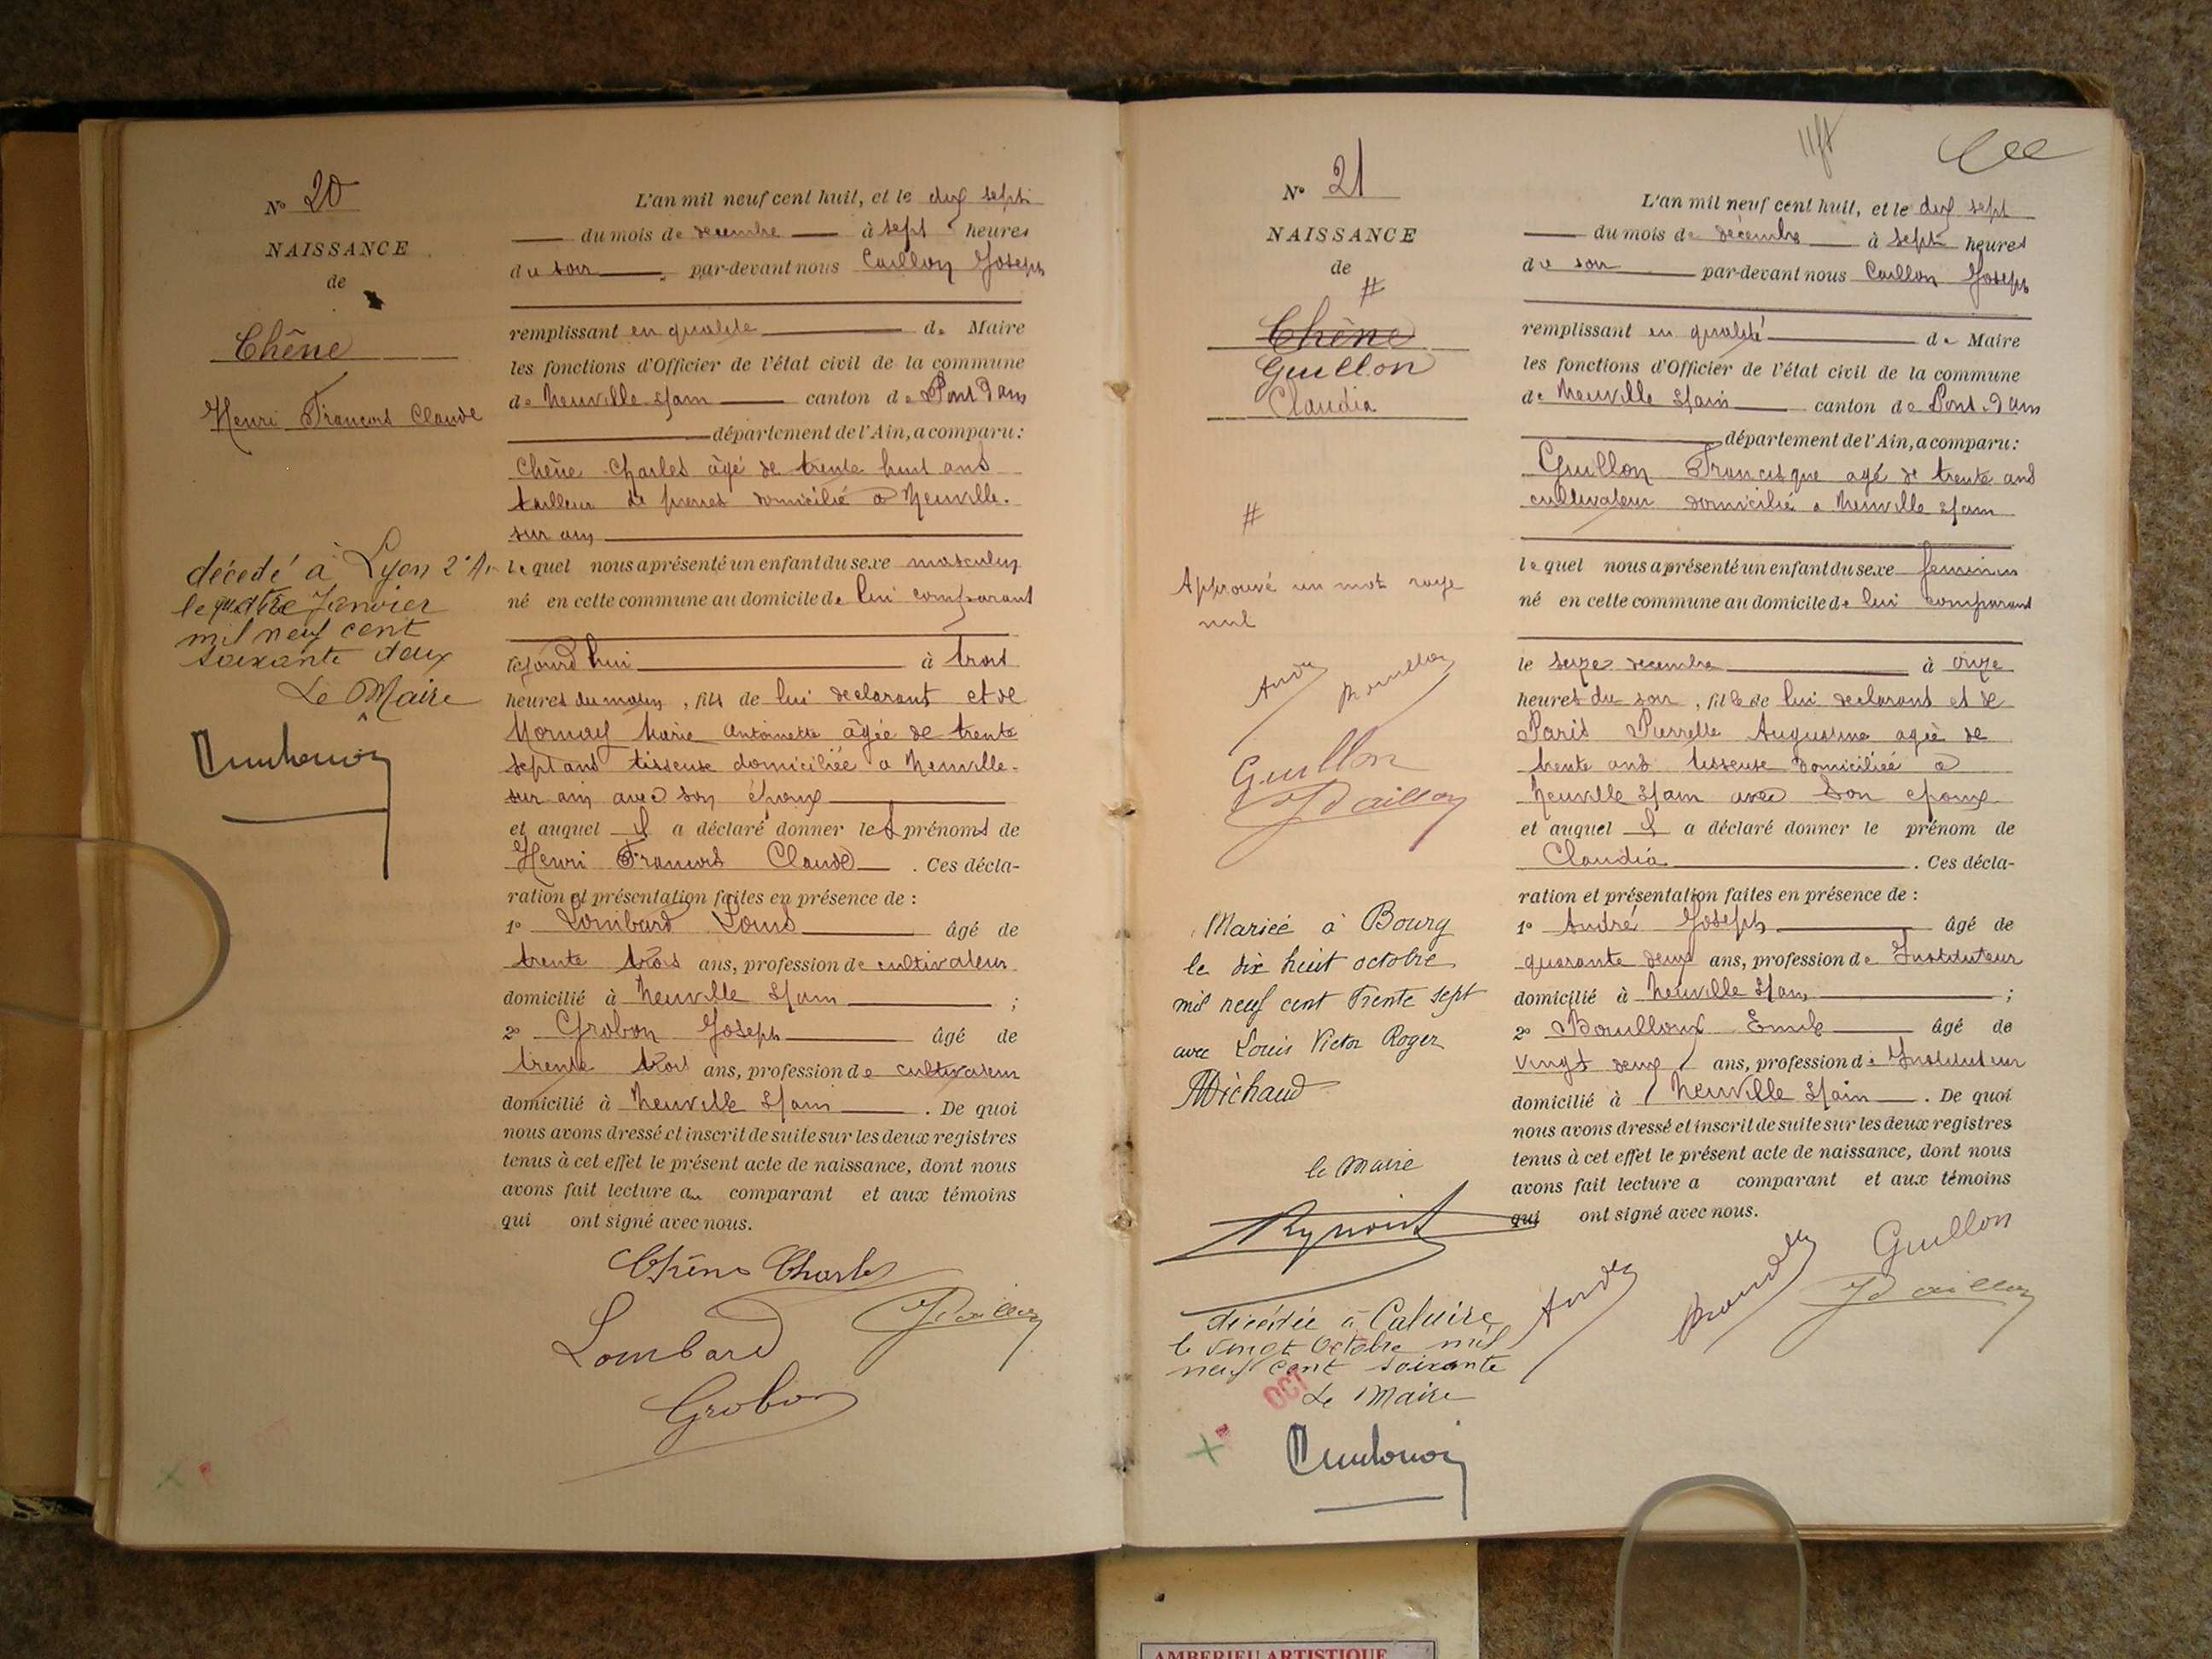 N° 20
NAISSANCE
de
Chêne
Henri François Claude
décédé à Lyon 2e Ar
le quatre Janvier
mil neuf cent
soixante deux
Le Maire
L'an mil neuf cent huit, et le dix sept
du mois de décembre à sept heures
du soir par-devant nous Caillon Joseph
remplissant en qualité de Maire
les fonctions d'Officier de l'état civil de la commune
de Neuville s/ain canton de Pont d'ain
département de l'Ain, a comparu :
Chêne Charles âgé de trente huit ans
tailleur de pierres domicilié à Neuville-
sur ain
lequel nous a présenté un enfant du sexe masculin
né en cette commune au domicile de lui comparant
aujourd'hui à trois
heures du matin, fils de lui déclarant et de
Mornay Marie Antoinette âgée de trente
sept ans tisseuse domiciliée à Neuville-
sur ain avec son époux
et auquel il a déclaré donner les prénoms de
Henri François Claude. Ces décla-
ration et présentation faites en présence de :
1° Lombard Louis âgé de
trente trois ans, profession de cultivateur
domicilié à Neuville s/ain ;
2° Grobon Joseph âgé de
trente trois ans, profession de cultivateur
domicilié à Neuville s/ain. De quoi
nous avons dressé et inscrit de suite sur les deux registres
tenus à cet effet le présent acte de naissance, dont nous
avons fait lecture au comparant et aux témoins
qui ont signé avec nous.
Chêne Charles
Lombard JCaillon
Grobon
N° 21
NAISSANCE
de
#
Chêne
Guillon
Claudia
#
Approuvé un mot rayé
nul
André Bouilloux
Guillon
JCaillon
Mariée à Bourg
le dix huit octobre
mil neuf cent trente sept
avec Louis Victor Roger
Michaud
le Maire
décédée à Caluire
le vingt Octobre mil
neuf cent soixante
OCT
Le Maire
L'an mil neuf cent huit, et le dix sept
du mois de décembre à sept heures
du soir par-devant nous Caillon Joseph
remplissant en qualité de Maire
les fonctions d'Officier de l'état civil de la commune
de Neuville s/ain canton de Pont-d'ain
département de l'Ain, a comparu :
Guillon Francisque agé de trente ans
cultivateur domicilié à Neuville s/ain
lequel nous a présenté un enfant du sexe feminin
né en cette commune au domicile de lui comparant
le seize décembre à onze
heures du soir, fille de lui déclarant et de
Paris Pierrette Augustine agée de
trente ans tisseuse domiciliée à
Neuville s/ain avec son époux
et auquel il a déclaré donner le prénom de
Claudia. Ces décla-
ration et présentation faites en présence de :
1° André Joseph âgé de
quarante deux ans, profession de Instituteur
domicilié à Neuville s/ain ;
2° Bouilloux Emile âgé de
vingt deux ans, profession de Instituteur
domicilié à Neuville s/ain. De quoi
nous avons dressé et inscrit de suite sur les deux registres
tenus à cet effet le présent acte de naissance, dont nous
avons fait lecture a comparant et aux témoins
qui ont signé avec nous.
Guillon
André Bouilloux JCaillon
AMBERIEU ARTISTIQUE